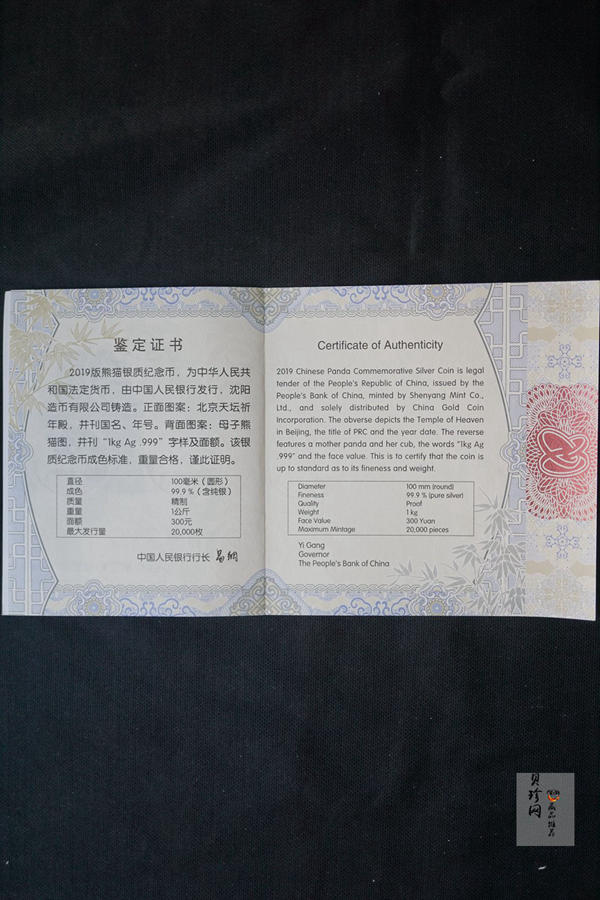 鉴定证书
2019版熊猫银质纪念币，为中华人民共
和国法定货币，由中国人民银行发行，沈阳
造币有限公司铸造。正面图案：北京天坛祈
年殿，并刊国名、年号。背面图案：母子熊
猫图，并刊“1kg Ag .999”字样及面额。该银
质纪念币成色标准，重量合格，谨此证明。
直径 100毫米（圆形）
成色 99.9％（含纯银）
质量 精制
重量 1公斤
面额 300元
最大发行量 20,000枚
中国人民银行行长 易纲
Certificate of Authenticity
2019 Chinese Panda Commemorative Silver Coin is legal
tender of the People's Republic of China, issued by the
People's Bank of China, minted by Shenyang Mint Co.,
Ltd., and solely distributed by China Gold Coin
Incorporation. The obverse depicts the Temple of Heaven
in Beijing, the title of PRC and the year date. The reverse
features a mother panda and her cub, the words "1kg Ag
.999" and the face value. This is to certify that the coin is
up to standard as to its fineness and weight.
Diameter 100 mm (round)
Fineness 99.9 % (pure silver)
Quality Proof
Weight 1 kg
Face Value 300 Yuan
Maximum Mintage 20,000 pieces
Yi Gang
Governor
The People's Bank of China
贝珍网
藏品推荐